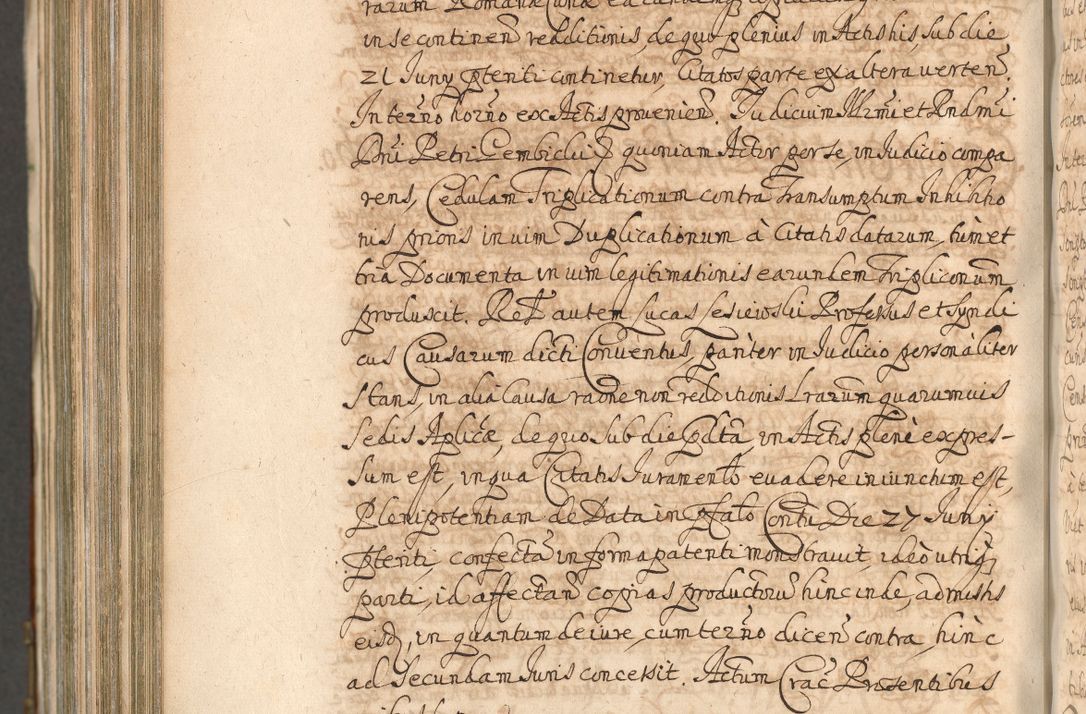 rarum Romana Curiæ ea
in se continen̄ redditionis, de quo plenius in Actis his, sub die
21 Juny pt̄enti continetur, Citatos parte ex altera verten̄.
In ter̄no hor̄no ex Actis provenien̄. Judicium Illr̄mi et Rndmi
Dn̄i Petri Gembicki &c quoniam Actor per se, in Judicio compa
rens, Cedulam Triplicationum contra Transumptum Inhibitio
nis prioris in vim Duplicationum à Citatis datarum, tùm et
tria Documenta in vim legitimationis earundem Triplicon̄um
produscit. Rel͞s autem Lucas Professus et Syndi
cus Causarum dicti Conventus, pariter in Judicio personaliter
stans, in aliâ Causa rāone non redditionis Lrarum quarumvis
Sedis Aplicæ, de quo sub die pd̄ta, in Actis plenè expres-
sum est, in qua Citatis Juramento evadere iniunctum est,
Plenipotentiam de Data in pfato Contu Die 27 Juny
pt̄enti, confectā in forma patenti monstravit, ideò utriq;
parti, id affectan̄ copias productorū hinc inde, admissis
eisd, in quantum de iure, cum ter̄no dicen̄ contra, hinc
ad secundam Juris concessit. Actum Crac̄ Presentibus